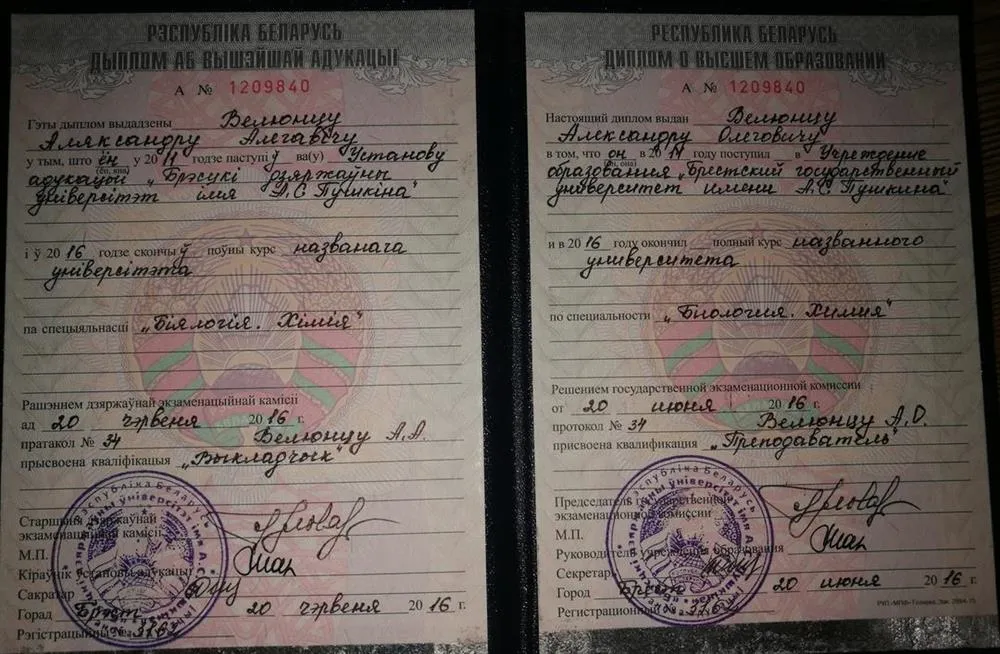 РЭСПУБЛІКА БЕЛАРУСЬ
ДЫПЛОМ АБ ВЫШЭЙШАЙ АДУКАЦЫІ
А № 1209840
Гэты дыплом выдадзены Велюнцу
Аляксандру Алегавічу
у тым, што ён у 2011 годзе паступіў ва(у) Установу
(ён, яна)
адукацыі „Брэсцкі дзяржаўны
ўніверсітэт імя А.С Пушкіна"
і ў 2016 годзе скончыў поўны курс названага
ўніверсітэта
па спецыяльнасці „Біялогія. Хімія"
Рашэннем дзяржаўнай экзаменацыйнай камісіі
ад 20 чэрвеня 2016 г.
пратакол № 34 Велюнцу А.А.
прысвоена кваліфікацыя „Выкладчык"
Старшыня дзяржаўнай
экзаменацыйнай камісіі
М.П.
Кіраўнік установы адукацыі
Сакратар
Горад Брэст 20 чэрвеня 2016 г.
Рэгістрацыйны № 3762
РЕСПУБЛИКА БЕЛАРУСЬ
ДИПЛОМ О ВЫСШЕМ ОБРАЗОВАНИИ
А № 1209840
Настоящий диплом выдан Велюнцу
Александру Олеговичу
в том, что он в 2011 году поступил в Учреждение
(он, она)
образования „Брестский государственный
университет имени А.С Пушкина"
и в 2016 году окончил полный курс названного
университета
по специальности „Биология. Химия"
Решением государственной экзаменационной комиссии
от 20 июня 2016 г.
протокол № 34 Велюнцу А.О.
присвоена квалификация „Преподаватель"
Председатель государственной
экзаменационной комиссии
М.П.
Руководитель учреждения образования
Секретарь
Город Брест 20 июня 2016 г.
Регистрационный № 3762